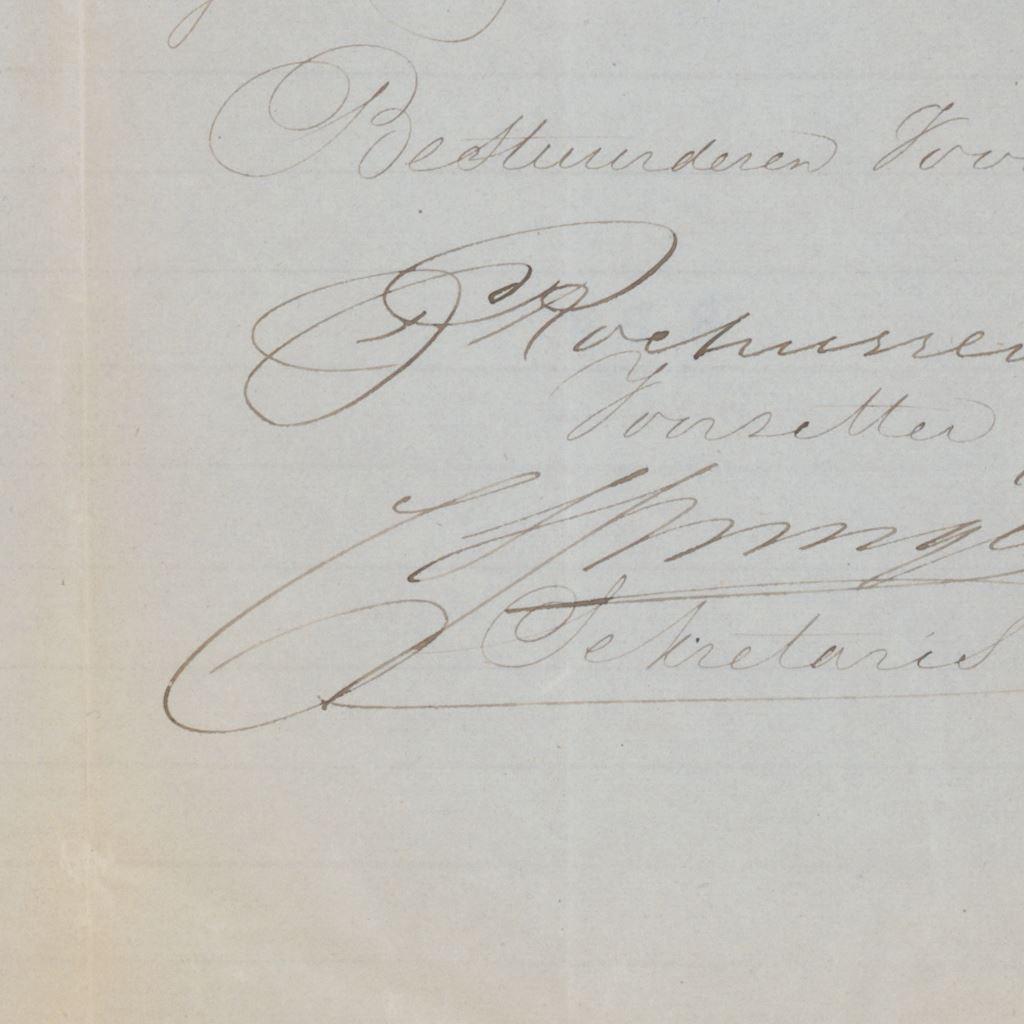 Bestuurderen Voor
Rochussen
Voorzetter
Sekretaris